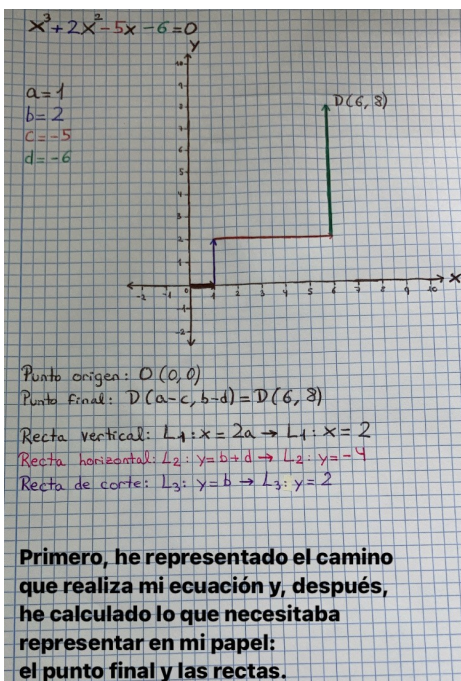 x³+2x²-5x-6=0
Y
a=1
b=2
c=-5
d=-6
D(6,8)
X
Punto origen: O(0,0)
Punto final: D(a-c,b-d)=D(6,8)
Recta vertical: L1:x=2a→L1:x=2
Recta horizontal: L2:y=b+d→L2:y=-4
Recta de corte: L3:y=b→L3:y=2
Primero, he representado el camino
que realiza mi ecuación y, después,
he calculado lo que necesitaba
representar en mi papel:
el punto final y las rectas.